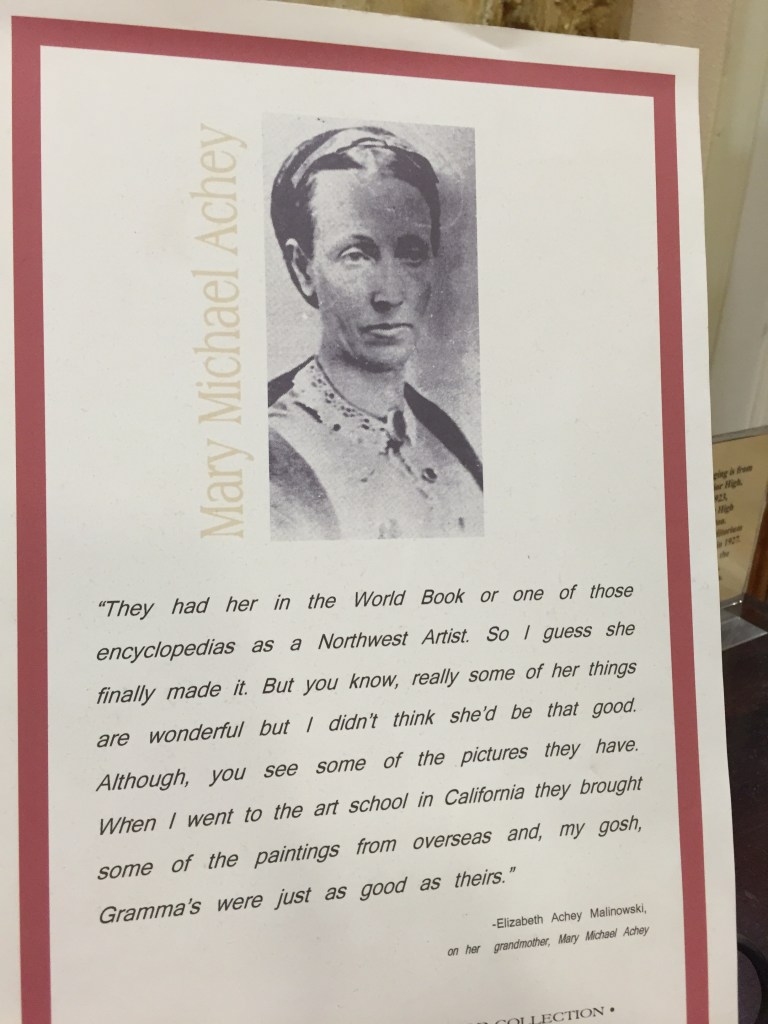 Mary Michael Achey
“They had her in the World Book or one of those
encyclopedias as a Northwest Artist. So I guess she
finally made it. But you know, really some of her things
are wonderful but I didn’t think she’d be that good.
Although, you see some of the pictures they have.
When I went to the art school in California they brought
some of the paintings from overseas and, my gosh,
Gramma’s were just as good as theirs.”
-Elizabeth Achey Malinowski,
on her grandmother, Mary Michael Achey
COLLECTION •
ging is from
High,
High
in 1927.
the